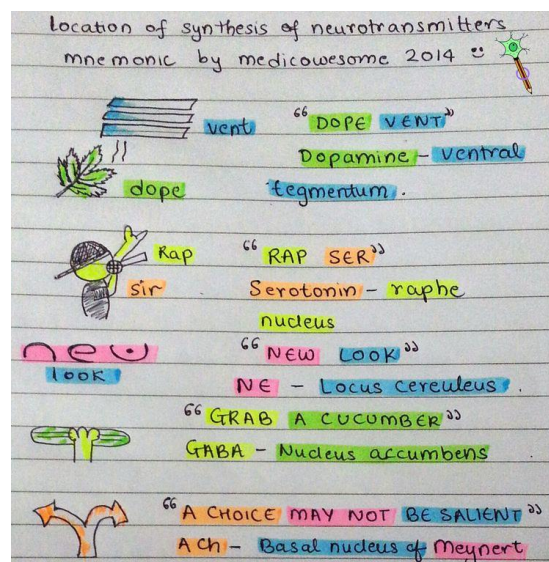 Location of synthesis of neurotransmitters
mnemonic by medicowesome 2014
vent
"DOPE VENT"
Dopamine - ventral
dope
tegmentum.
Rap
"RAP SER"
sir
Serotonin - raphe
nucleus
new
"NEW LOOK"
look
NE - Locus cereuleus.
"GRAB A CUCUMBER"
GABA - Nucleus accumbens
"A CHOICE MAY NOT BE SALIENT"
ACh - Basal nucleus of Meynert